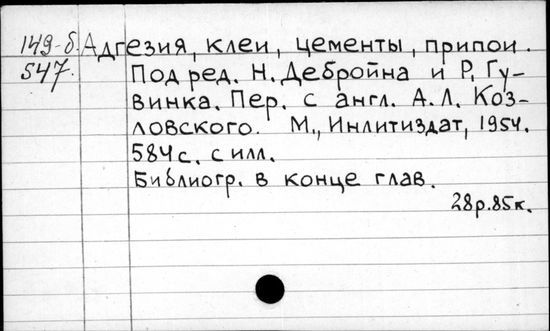 149-б. Адгезия, клеи, цементы, припои.
547. Под ред. Н. Дебройна и Р. Гу-
винка. Пер. с англ. А.Л. Коз-
ловского. М., Инлитиздат, 1954.
584 с. с илл.
Библиогр. в конце глав.
28р.85к.